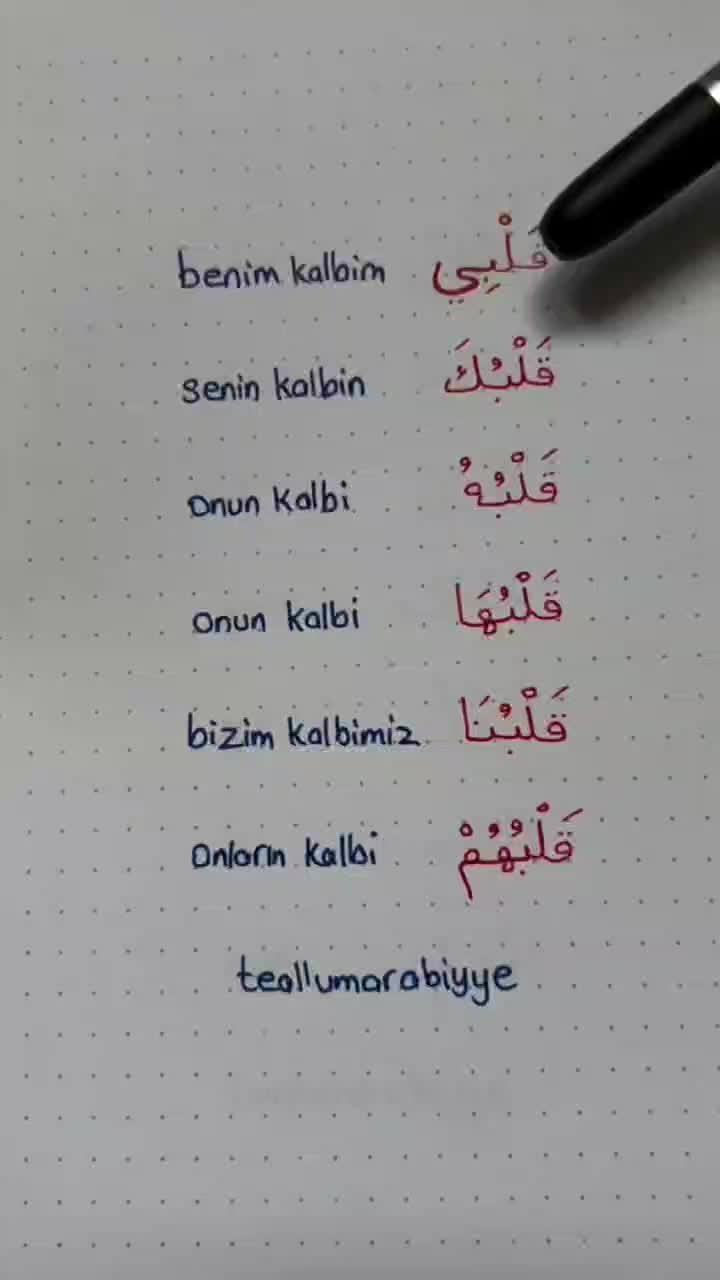 benim kalbim قَلْبِي
senin kalbin قَلْبُكَ
onun kalbi قَلْبُهُ
onun kalbi قَلْبُهَا
bizim kalbimiz قَلْبُنَا
onların kalbi قَلْبُهُمْ
teallumarabiyye